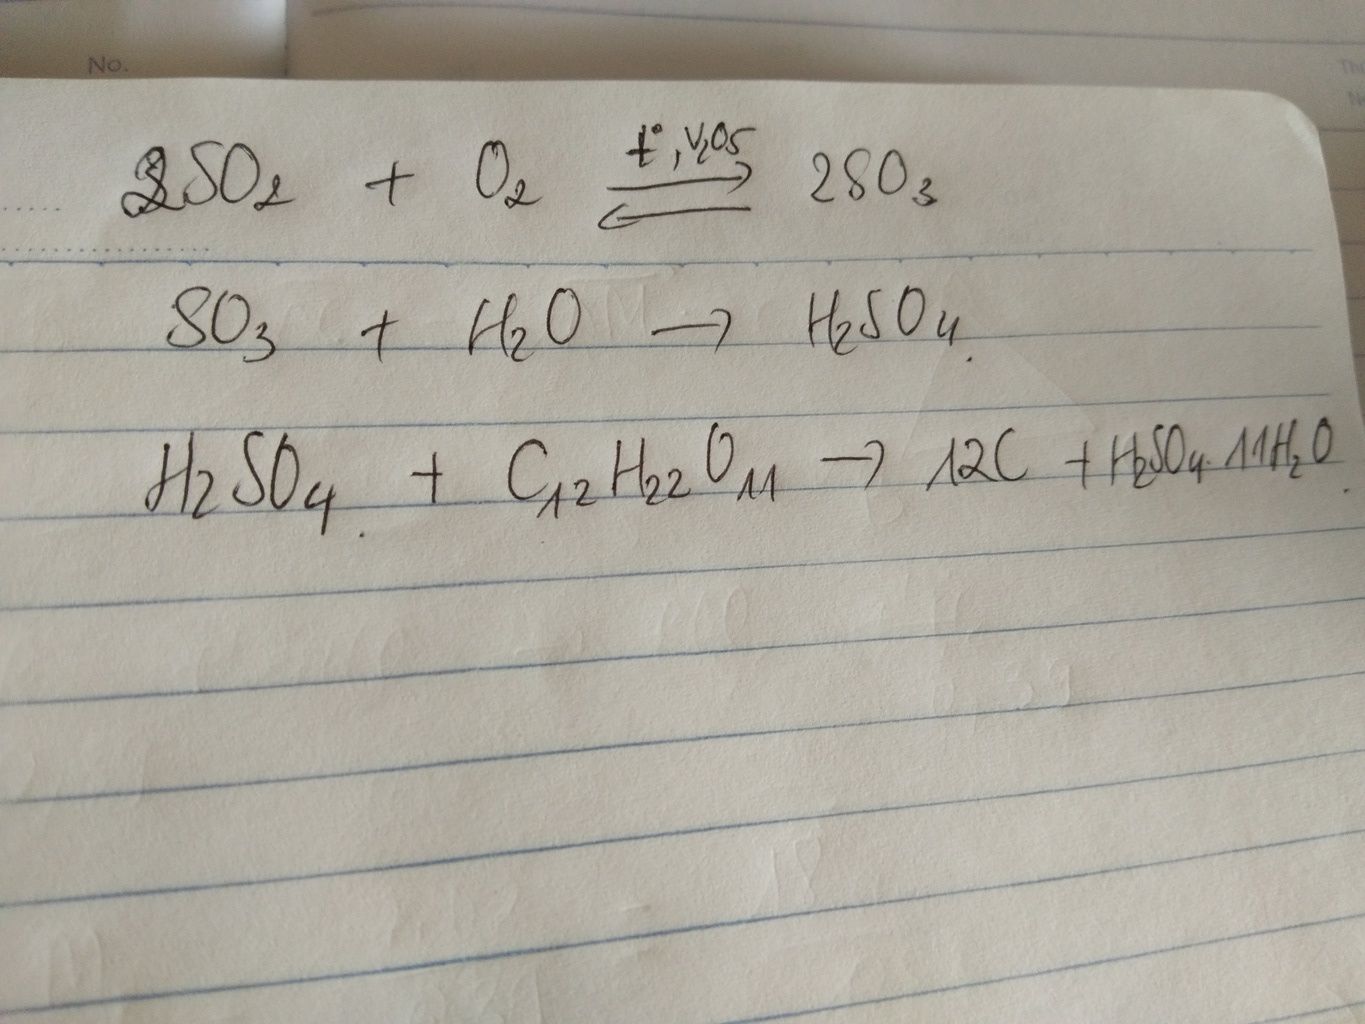 No.
2SO2 + O2 ⇌ t°, V2O5 2SO3
SO3 + H2O → H2SO4.
H2SO4. + C12H22O11 → 12C + H2SO4.11H2O.